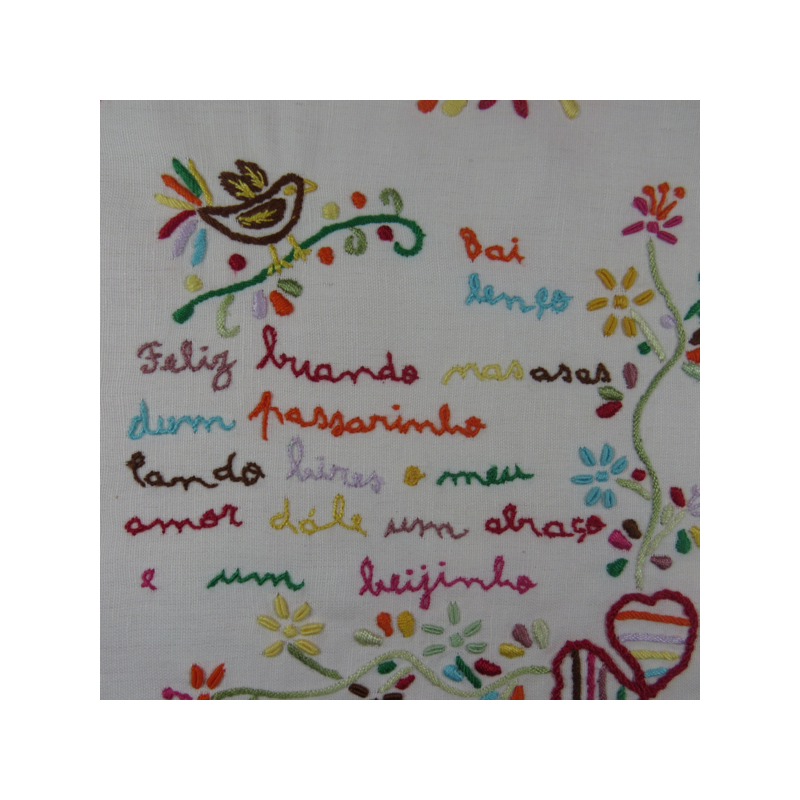 Bai
lenço
Feliz buando nas asas
dum passarinho
cando bires o meu
amor dále um abraço
e um beijinho